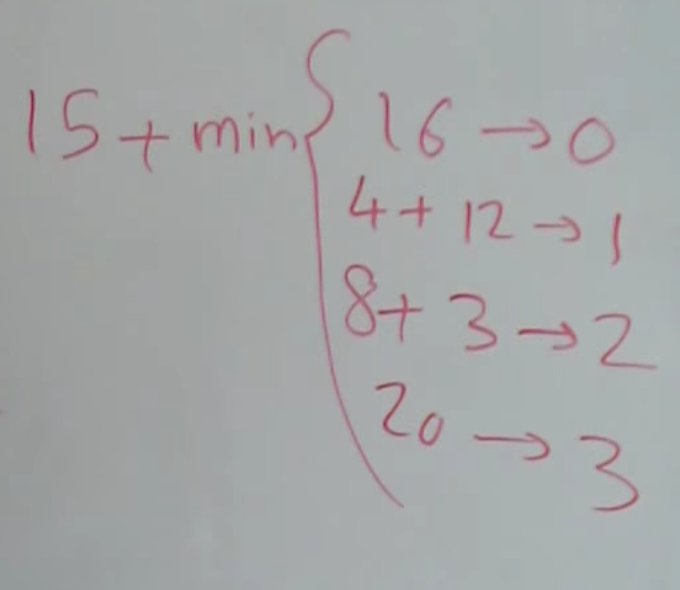 15 + min { 16 → 0
4 + 12 → 1
8 + 3 → 2
20 → 3